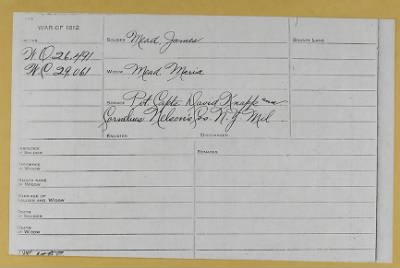 WAR OF 1812
SOLDIER Mead, James
BOUNTY LAND
W.O 26.491
W.O 29.061
WIDOW Mead Maria
SERVICE Pvt. Capts. David Knapp and
Cornelius Nelson's Cos. N.Y. Mil
ENLISTED DISCHARGED
OF SOLDIER
REMARKS
RESIDENCE
OF WIDOW
MAIDEN NAME
OF WIDOW
MARRIAGE OF
SOLDIER AND WIDOW
DEATH
OF SOLDIER
DEATH
OF WIDOW